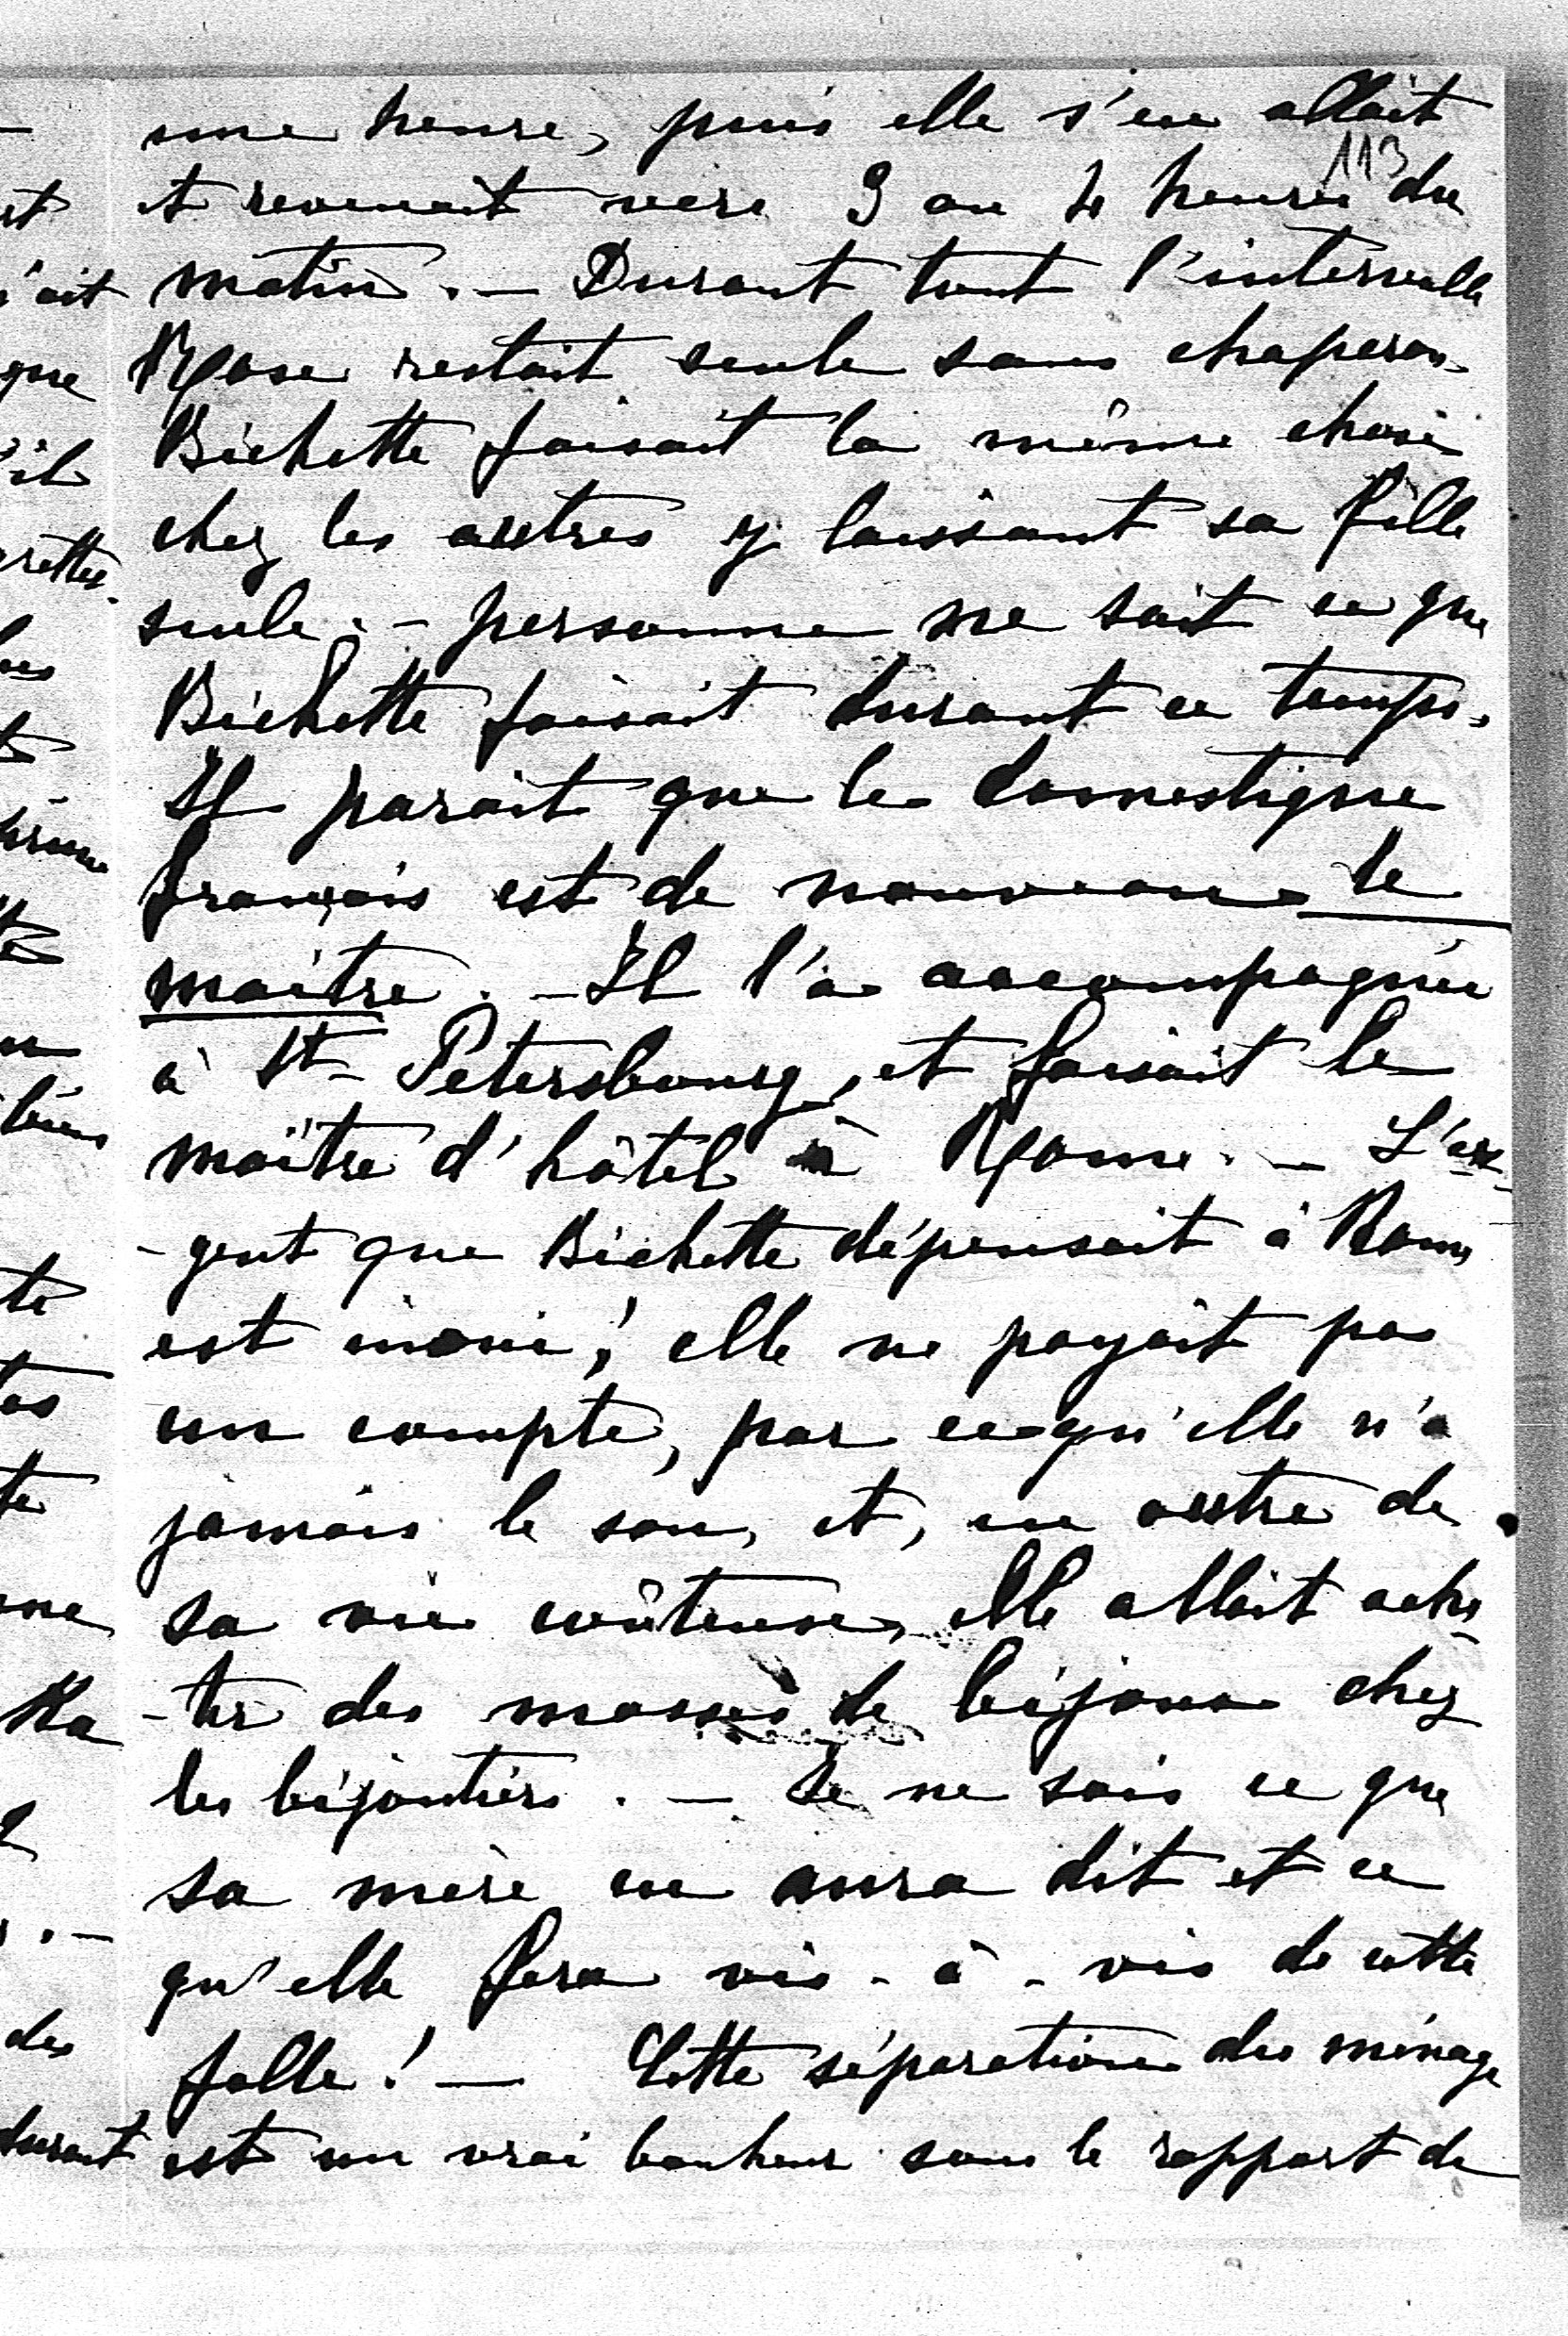 une heure, puis elle s'en allait
113
et revenait vers 3 ou 4 heures du
matin. — Durant tout l'intervalle
Rose restait seule sans chaperon.
Bichette faisait la même chose
chez les autres y laissant sa fille
seule. — personne ne sait ce que
Bichette faisait durant ce temps.
Il parait que le domestique
français est de nouveau le
maître. — Il l'a accompagnée
à St - Petersbourg, et faisait le
maître d'hôtel à Rome. — L'ar-
-gent que Bichette dépensait à Rome
est inouï; elle ne payait pas
un compte, par ce qu'elle n'a
jamais le sou, et, en outre de
sa vie coûteuse, elle allait ache-
-ter des masses de bijoux chez
les bijoutiers. — Je ne sais ce que
sa mère en aura dit et ce
qu'elle fera vis - à - vis de cette
folle! — Cette séparation du ménage
est un vrai bonheur sous le rapport de